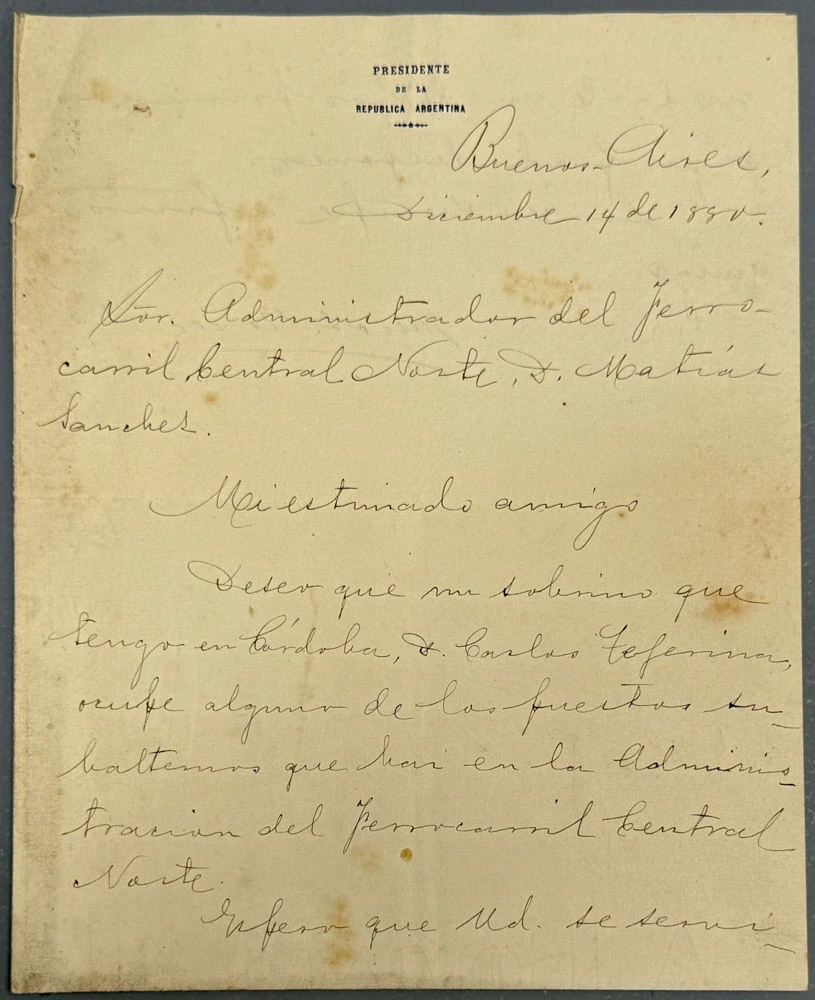 PRESIDENTE
DE LA
REPUBLICA ARGENTINA
Buenos-Aires,
Diciembre 14 de 1880.
Sõr. Administrador del Ferro-
carril Central Norte, D. Matías
Sanchez.
Mi estimado amigo
Deseo que un sobrino que
tengo en Córdoba, D. Carlos Teferina,
ocupe alguno de los puestos su-
balternos que hai en la Adminis-
tracion del Ferrocarril Central
Norte.
Espero que Ud. se servi-